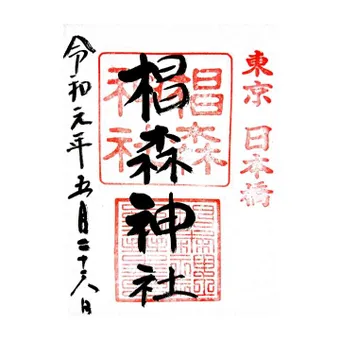 東京 日本橋
椙森
神社
椙森神社
令和元年五月二十六日